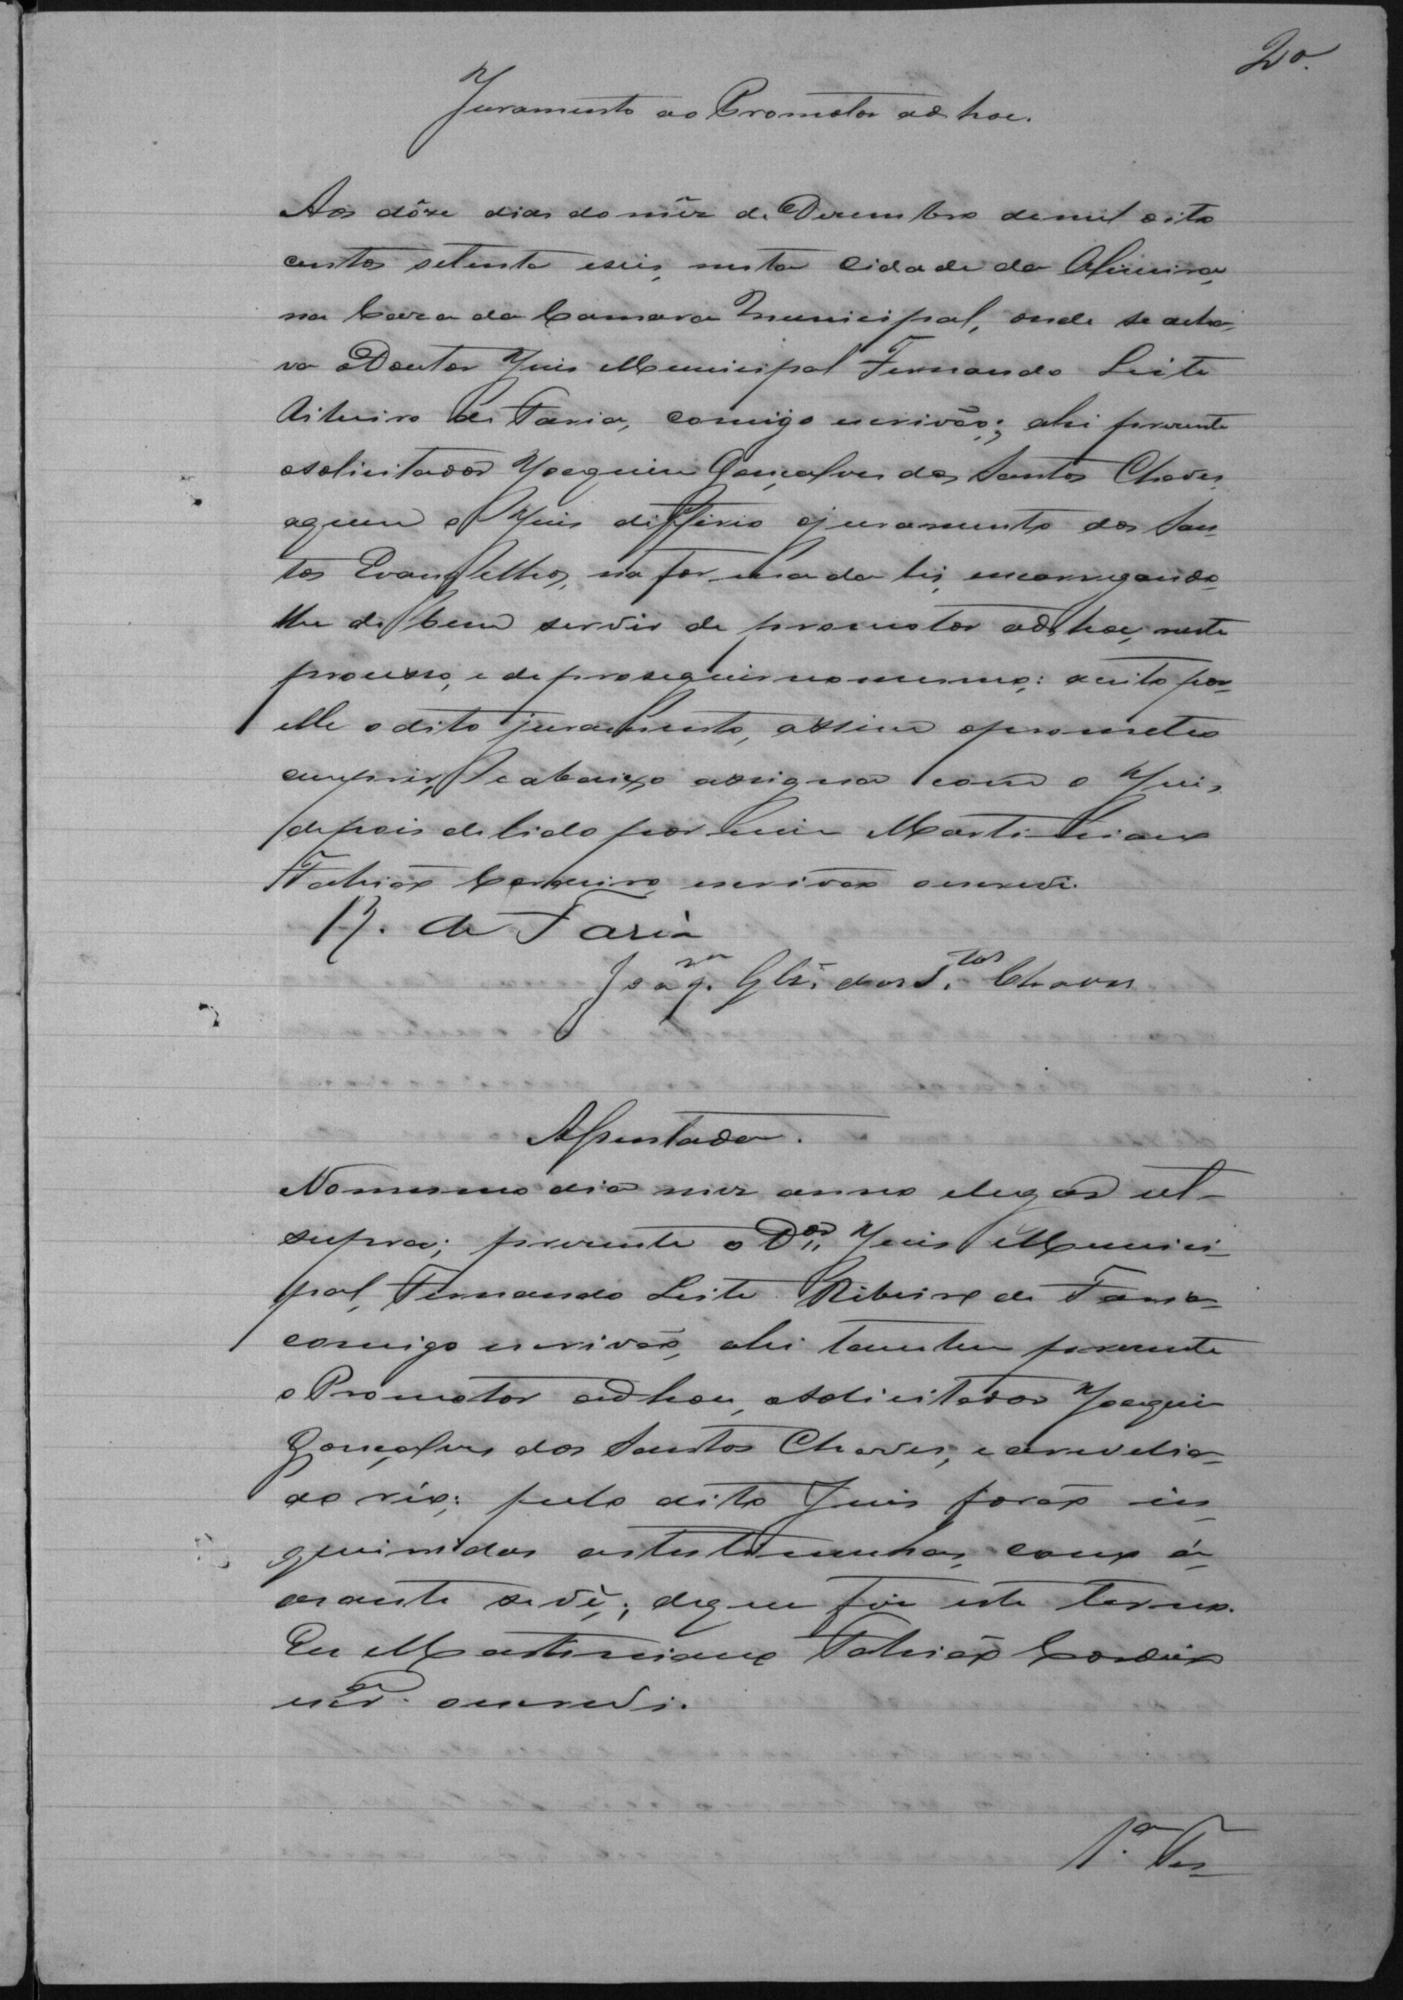 20.
Juramento ao Promotor ad hoc.
Aos dôze dias do mêz de Dezembro de mil oito
centos setenta e seis, nesta Cidade da Limeira,
na Caza da Camara Municipal, onde se acha-
va o Doutor Juis Municipal Fernando Leite
Ribeiro de Faria, comigo escrivão; ahi prezente
o solicitador Joaquim Gonçalves dos Santos Chaves
a quem o Juis differio o juramento dos San-
tos Evangelhos, na forma da lei, encarregando-
lhe de bem servir de promotor ad hoc, neste
processo, e de proseguir no mesmo: aceito por
elle o dito juramento, assim o prometeo
cumprir, e abaixo assigna com o Juis,
depois de lido por mim Martiniano
Fabião Cordeiro, escrivão o escrevi.
R. de Faria
Joaqm. Glz. dos S.tos Chaves
Assentada.
No mesmo dia mez anno e lugar ut-
supra; prezente o Dor. Juis Munici-
pal, Fernando Leite Ribeiro de Faria
comigo escrivão, ahi tambem prezente
o Promotor ad hoc, o solicitador Joaquim
Gonçalves dos Santos Chaves, e a revelia
do réo: pelo dito Juis forão in-
queiridas as testemunhas, como á
diante se vê; de que fiz este termo.
Eu Martiniano Fabião Cordeiro
escr.am o escrevi.
1.a Tes-